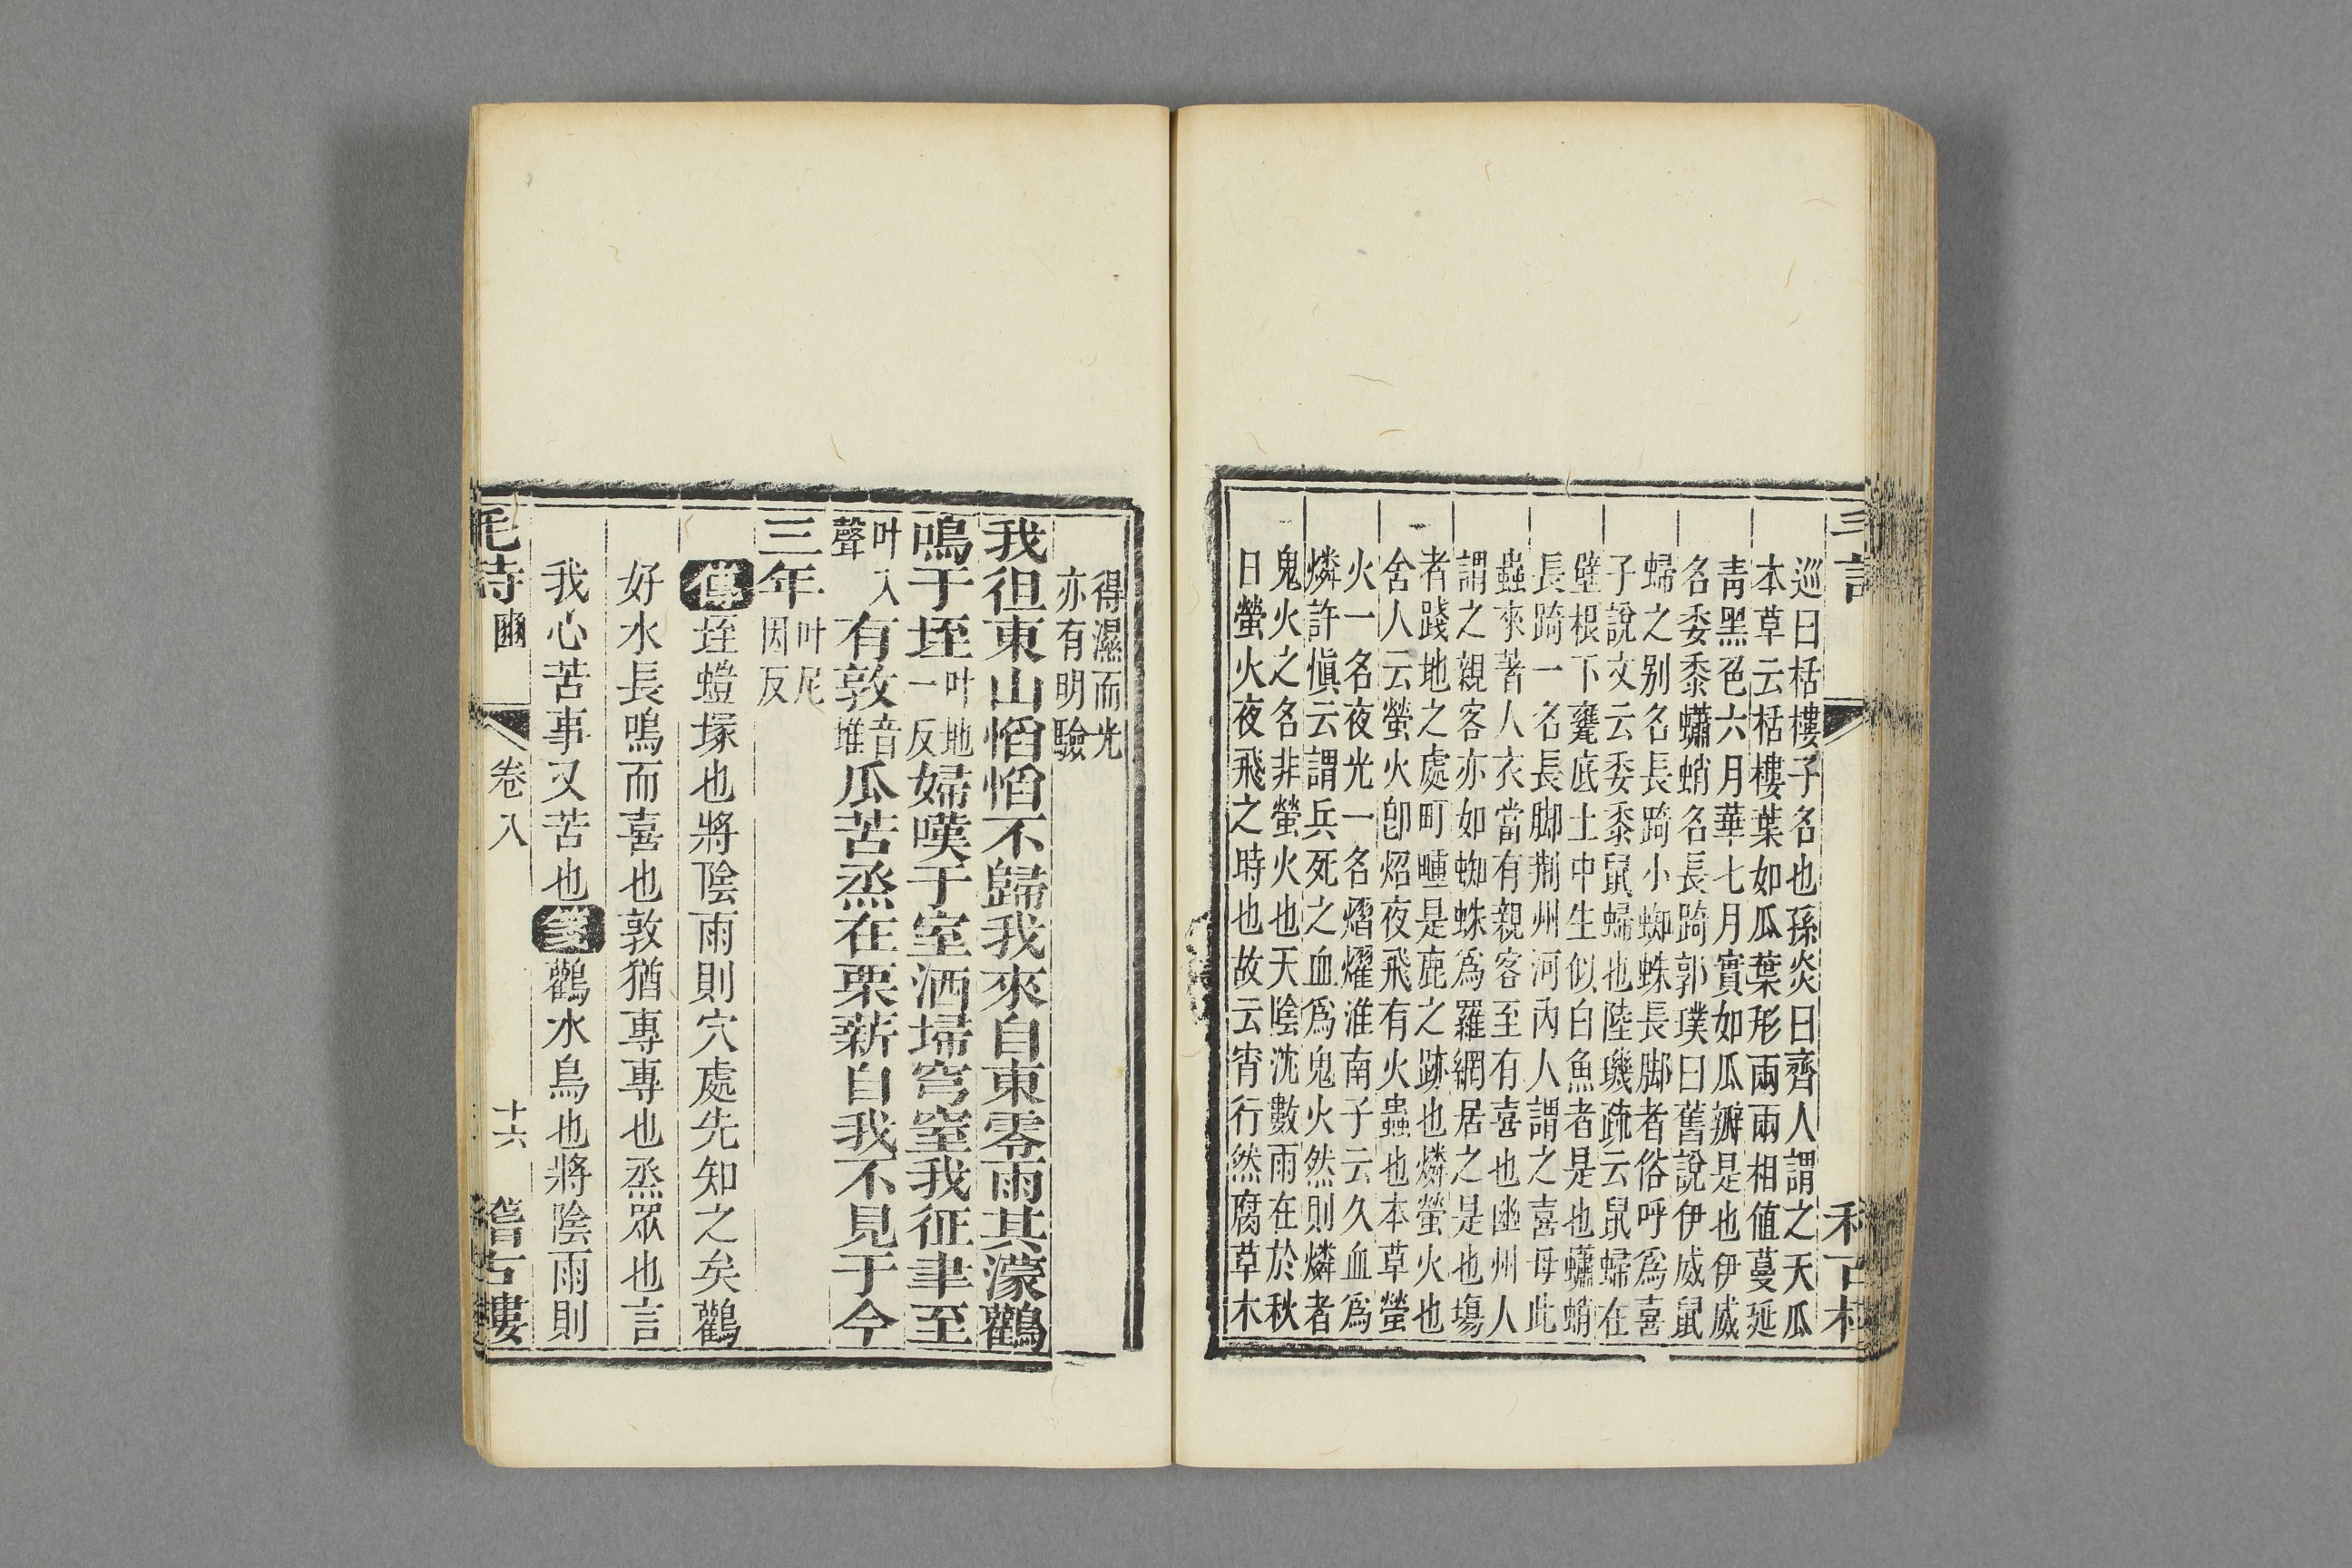 巡曰栝樓子名也孫炎曰齊人謂之天瓜
本草云栝樓葉如瓜葉形兩兩相値蔓延
靑黑色六月華七月實如瓜瓣是也伊威
名委黍蠨蛸名長踦郭璞曰舊說伊威鼠
蝂之别名長踦小蜘蛛長脚者俗呼爲喜
子說文云委黍鼠蝂也陸璣疏云鼠蝂在
壁根下甕底土中生似白魚者是也蠨蛸
長踦一名長脚荆州河內人謂之喜母此
蟲來著人衣當有親客至有喜也幽州人
謂之親客亦如蜘蛛爲羅網居之是也塲
者踐地之處町畽是鹿之跡也燐螢火也
舍人云螢火卽炤夜飛有火蟲也本草螢
火一名夜光一名熠燿淮南子云久血爲
燐許愼云謂兵死之血爲鬼火然則燐者
鬼火之名非螢火也天陰沈數雨在於秋
日螢火夜飛之時也故云宵行然腐草木
得濕而光
亦有明驗
我徂東山慆慆不歸我來自東零雨其濛鸛
鳴于垤叶地一反婦嘆于室洒埽穹窒我征聿至
叶入聲有敦音堆瓜苦烝在栗薪自我不見于今
三年叶尼因反
傳垤螘塚也將陰雨則穴處先知之矣鸛
好水長鳴而喜也敦猶專專也烝眾也言
我心苦事又苦也箋鸛水鳥也將陰雨則
毛詩 豳 卷八 十六 稽古樓